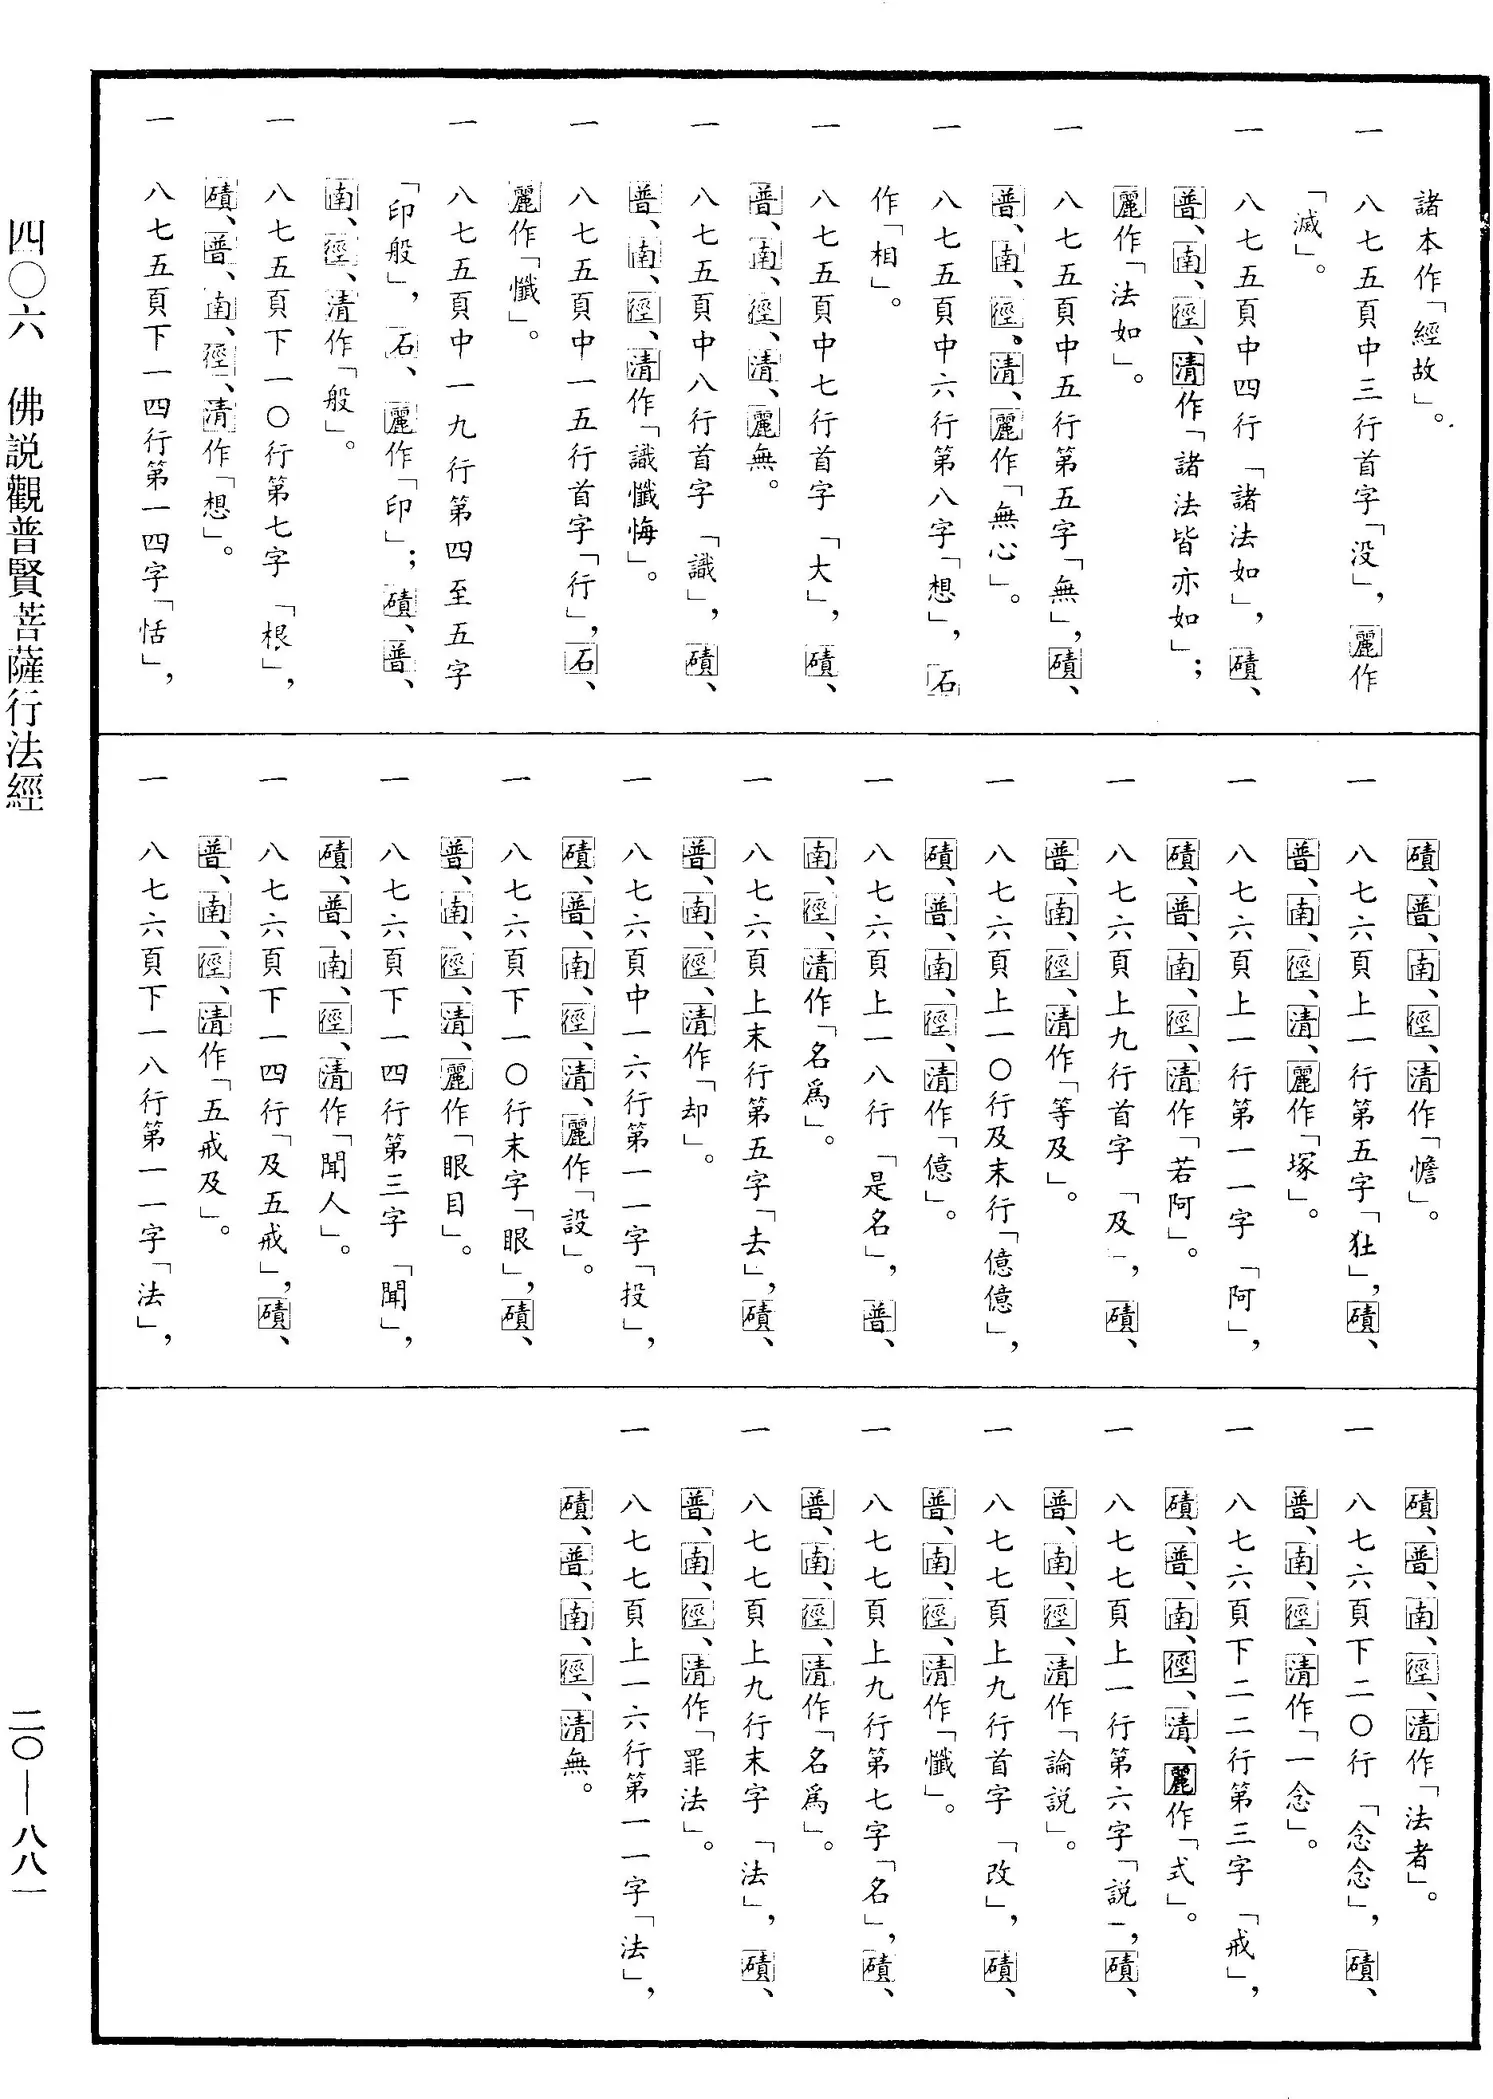 諸本作「經故」。
一　八七五頁中三行首字「没」，麗作
「滅」。
一　八七五頁中四行「諸法如」，磧、
普、南、徑、清作「諸法皆亦如」；
麗作「法如」。
一　八七五頁中五行第五字「無」，磧、
普、南、徑。清、麗作「無心」。
一　八七五頁中六行第八字「想」，石
作「相」。
一　八七五頁中七行首字「大」，磧、
普、南、徑、清、麗無。
一　八七五頁中八行首字「識」，磧、
普、南、徑、清作「識懺悔」。
一　八七五頁中一五行首字「行」，石、
麗作「懺」。
一　八七五頁中一九行第四至五字
「印般」，石、麗作「印」；磧、普、
南、徑、清作「般」。
一　八七五頁下一〇行第七字「根」，
磧、普、南、徑、清作「想」。
一　八七五頁下一四行第一四字「恬」，
磧、普、南、徑、清作「憺」。
一　八七六頁上一行第五字「㹥」，磧、
普、南、徑、清、麗作「塚」。
一　八七六頁上一行第一一字「阿」，
磧、普、南、徑、清作「若阿」。
一　八七六頁上九行首字「及」，磧、
普、南、徑、清作「等及」。
一　八七六頁上一〇行及末行「億億」，
磧、普、南、徑、清作「億」。
一　八七六頁上一八行「是名」，普、
南、徑、清作「名爲」。
一　八七六頁上末行第五字「去」，磧、
普、南、徑、清作「却」。
一　八七六頁中一六行第一一字「投」，
磧、普、南、徑、清、麗作「設」。
一　八七六頁下一〇行末字「眼」，磧、
普、南、徑、清、麗作「眼目」。
一　八七六頁下一四行第三字「聞」，
磧、普、南、徑、清作「聞人」。
一　八七六頁下一四行「及五戒」，磧、
普、南、徑、清作「五戒及」。
一　八七六頁下一八行第一一字「法」，
磧、普、南、徑、清作「法者」。
一　八七六頁下二〇行「念念」，磧、
普、南、徑、清作「一念」。
一　八七六頁下二二行第三字「戒」，
磧、普、南、徑、清、麗作「式」。
一　八七七頁上一行第六字「説」，磧、
普、南、徑、清作「論説」。
一　八七七頁上九行首字「改」，磧、
普、南、徑、清作「懺」。
一　八七七頁上九行第七字「名」，磧、
普、南、徑、清作「名爲」。
一　八七七頁上九行末字「法」，磧、
普、南、徑、清作「罪法」。
一　八七七頁上一六行第一一字「法」，
磧、普、南、徑、清無。
四〇六　佛説觀普賢菩薩行法經
二〇—八八一